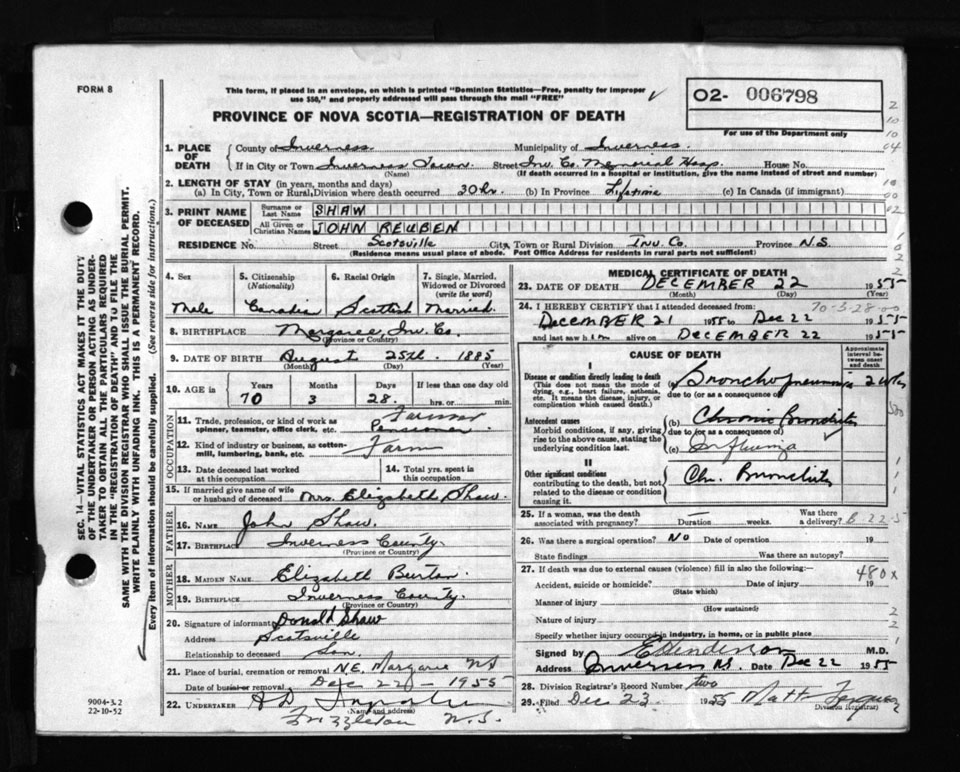 FORM 8
This form, if placed in an envelope, on which is printed "Dominion Statistics—Free, penalty for improper
use $50," and properly addressed will pass through the mail "FREE"
02- 006798
For use of the Department only
PROVINCE OF NOVA SCOTIA—REGISTRATION OF DEATH
1. PLACE OF DEATH
County of Inverness Municipality of Inverness
If in City or Town Inverness Town Street Inv. Co. Memorial Hosp. House No.
(Name) (If death occurred in a hospital or institution, give the name instead of street and number)
2. LENGTH OF STAY (in years, months and days)
(a) In City, Town or Rural Division where death occurred 30 hr. (b) In Province Lifetime (c) In Canada (if immigrant)
3. PRINT NAME OF DECEASED
Surname or Last Name SHAW
All Given or Christian Names JOHN REUBEN
RESIDENCE No. Street Scotsville City, Town or Rural Division Inv. Co. Province N.S.
(Residence means usual place of abode. Post Office Address for residents in rural parts not sufficient)
4. Sex Male
5. Citizenship (Nationality) Canadian
6. Racial Origin Scottish
7. Single, Married, Widowed or Divorced (write the word) Married
8. BIRTHPLACE Margaree, Inv. Co.
(Province or Country)
9. DATE OF BIRTH August 25th. 1885
(Month) (Day) (Year)
10. AGE in Years Months Days If less than one day old
70 3 28. hrs. or min.
OCCUPATION
11. Trade, profession, or kind of work as spinner, teamster, office clerk, etc. Farmer Pensioner
12. Kind of industry or business, as cotton-mill, lumbering, bank, etc. Farm
13. Date deceased last worked at this occupation
14. Total yrs. spent in this occupation
15. If married give name of wife or husband of deceased Mrs. Elizabeth Shaw.
FATHER
16. NAME John Shaw.
17. BIRTHPLACE Inverness County.
(Province or Country)
MOTHER
18. MAIDEN NAME Elizabeth Burton
19. BIRTHPLACE Inverness County.
(Province or Country)
20. Signature of informant Donald Shaw
Address Scotsville
Relationship to deceased Son.
21. Place of burial, cremation or removal N.E. Margaree NS
Date of burial or removal Dec 22 - 1955
22. UNDERTAKER
(Name and address)
Frizzleton N.S.
MEDICAL CERTIFICATE OF DEATH
23. DATE OF DEATH DECEMBER 22 1955
(Month) (Day)
24. I HEREBY CERTIFY that I attended deceased from: 70-3-28
DECEMBER 21 1955 to Dec 22 1955
and last saw him alive on DECEMBER 22 1955
CAUSE OF DEATH
Approximate interval between onset and death
I
Disease or condition directly leading to death
(This does not mean the mode of dying, e.g., heart failure, asthenia, etc. It means the disease, injury, or complication which caused death.)
(a) Bronchopneumonia 2 wks
due to (or as a consequence of)
Antecedent causes
Morbid conditions, if any, giving rise to the above cause, stating the underlying condition last.
(b) Chronic Bronchitis
due to (or as a consequence of)
(c) Influenza
II
Other significant conditions
contributing to the death, but not related to the disease or condition causing it.
Chr. Bronchitis
25. If a woman, was the death associated with pregnancy? Duration weeks. Was there a delivery? 8-22-5
26. Was there a surgical operation? No Date of operation 19
State findings Was there an autopsy?
27. If death was due to external causes (violence) fill in also the following: 480x
Accident, suicide or homicide? Date of injury 19
(State which)
Manner of injury
(How sustained)
Nature of injury
Specify whether injury occurred in industry, in home, or in public place
Signed by M.D.
Address Inverness N.S. Date Dec 22 1955
28. Division Registrar's Record Number two
29. Filed Dec 23 1955 Matt
Division Registrar
SEC. 14—VITAL STATISTICS ACT MAKES IT THE DUTY
OF THE UNDERTAKER OR PERSON ACTING AS UNDER-
TAKER TO OBTAIN ALL THE PARTICULARS REQUIRED
IN THE "REGISTRATION OF DEATH" AND TO FILE THE
SAME WITH THE DIVISION REGISTRAR WHO SHALL ISSUE THE BURIAL PERMIT.
WRITE PLAINLY WITH UNFADING INK. THIS IS A PERMANENT RECORD.
Every item of information should be carefully supplied. (See reverse side for instructions.)
9004-3.2
22-10-52